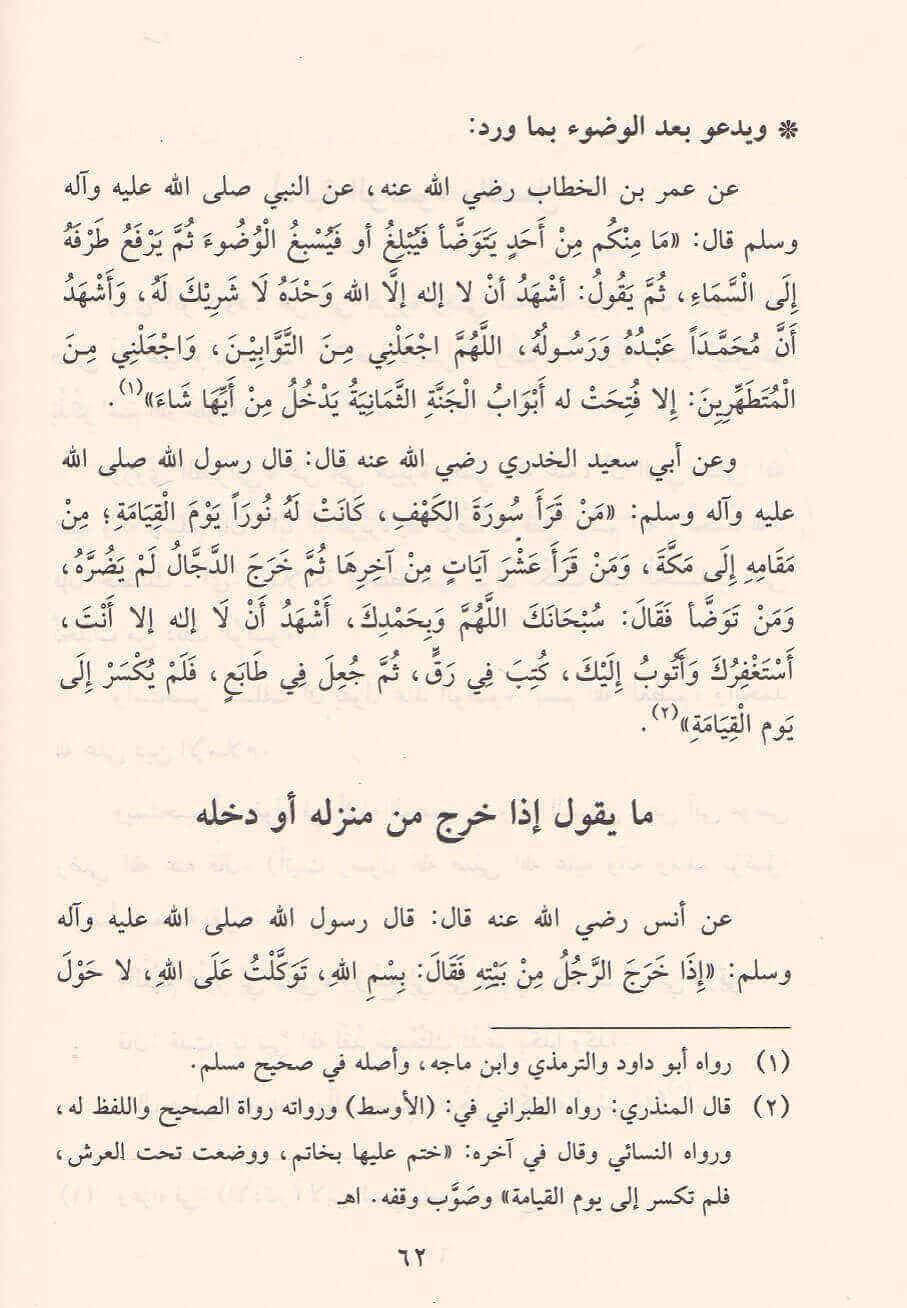 ❊ ويدعو بعد الوضوء بما ورد:
عن عمر بن الخطاب رضي الله عنه، عن النبي صلى الله عليه وآله
وسلم قال: «مَا مِنْكُم مِنْ أَحَدٍ يَتَوَضَّأ فَيُبْلِغُ أو فَيُسْبِغُ الْوُضُوءَ ثُمَّ يَرْفَعُ طَرْفَهُ
إِلَى السَّمَاءِ، ثُمَّ يَقُولُ: أشْهَدُ أنْ لا إله إلَّا الله وَحْدَهُ لَا شَرِيْكَ لَهُ، وَأَشْهَدُ
أَنَّ مُحَمَّـدَاً عَبْـدُهُ وَرَسُـولُهُ، اللَّهُمَّ اجْعَلْنِي مِـنَ التَّوَّابِيْـنَ، وَاجْعَلْنِي مِـنَ
الْمُتَطَهِّرِينَ: إِلا فُتِحَتْ له أَبْوَابُ الْجَنَّةِ الثَّمَانِيَةُ يَدْخُلُ مِنْ أَيِّهَا شَاءَ»(١).
وعن أبي سعيد الخدري رضي الله عنه قال: قال رسول الله صلى الله
عليه وآله وسلم: «مَنْ قَرَأَ سُورَةَ الكَهْفِ، كَانَتْ لَهُ نُورَاً يَوْمَ الْقِيَامَةِ؛ مِنْ
مَقَامِهِ إِلَى مَكَّةَ، وَمَنْ قَرَأَ عَشْرَ آيَاتٍ مِنْ آخِرِهَا ثُمَّ خَرَجَ الدَّجَّالُ لَمْ يَضُرَّهُ،
وَمَنْ تَوَضَّأ فَقَالَ: سُبْحَانَكَ اللَّهُمَّ وَبِحَمْدِكَ، أَشْهَدُ أَنْ لَا إله إلا أَنْتَ،
أَسْتَغْفِرُكَ وَأَتُوبُ إِلَيْكَ، كُتِبَ فِي رَقٍّ، ثُمَّ جُعِلَ فِي طَابَعٍ، فَلَمْ يُكْسَرْ إِلَى
يَوم الْقِيَامَةِ»(٢).
ما يقول إذا خرج من منزله أو دخله
عن أنس رضي الله عنه قال: قال رسول الله صلى الله عليه وآله
وسلم: «إِذَا خَرَجَ الرَّجُلُ مِنْ بَيْتِهِ فَقَالَ: بِسْمِ اللهِ، تَوَكَّلْتُ عَلَى اللهِ، لا حَوْلَ
(١) رواه أبو داود والترمذي وابن ماجه، وأصله في صحيح مسلم.
(٢) قال المنذري: رواه الطبراني في: (الأوسط) ورواته رواة الصحيح واللفظ له،
ورواه النسائي وقال في آخره: «ختم عليها بخاتم، ووضعت تحت العرش،
فلم تكسر إلى يوم القيامة» وصَوَّب وقفه. اهـ
٦٢